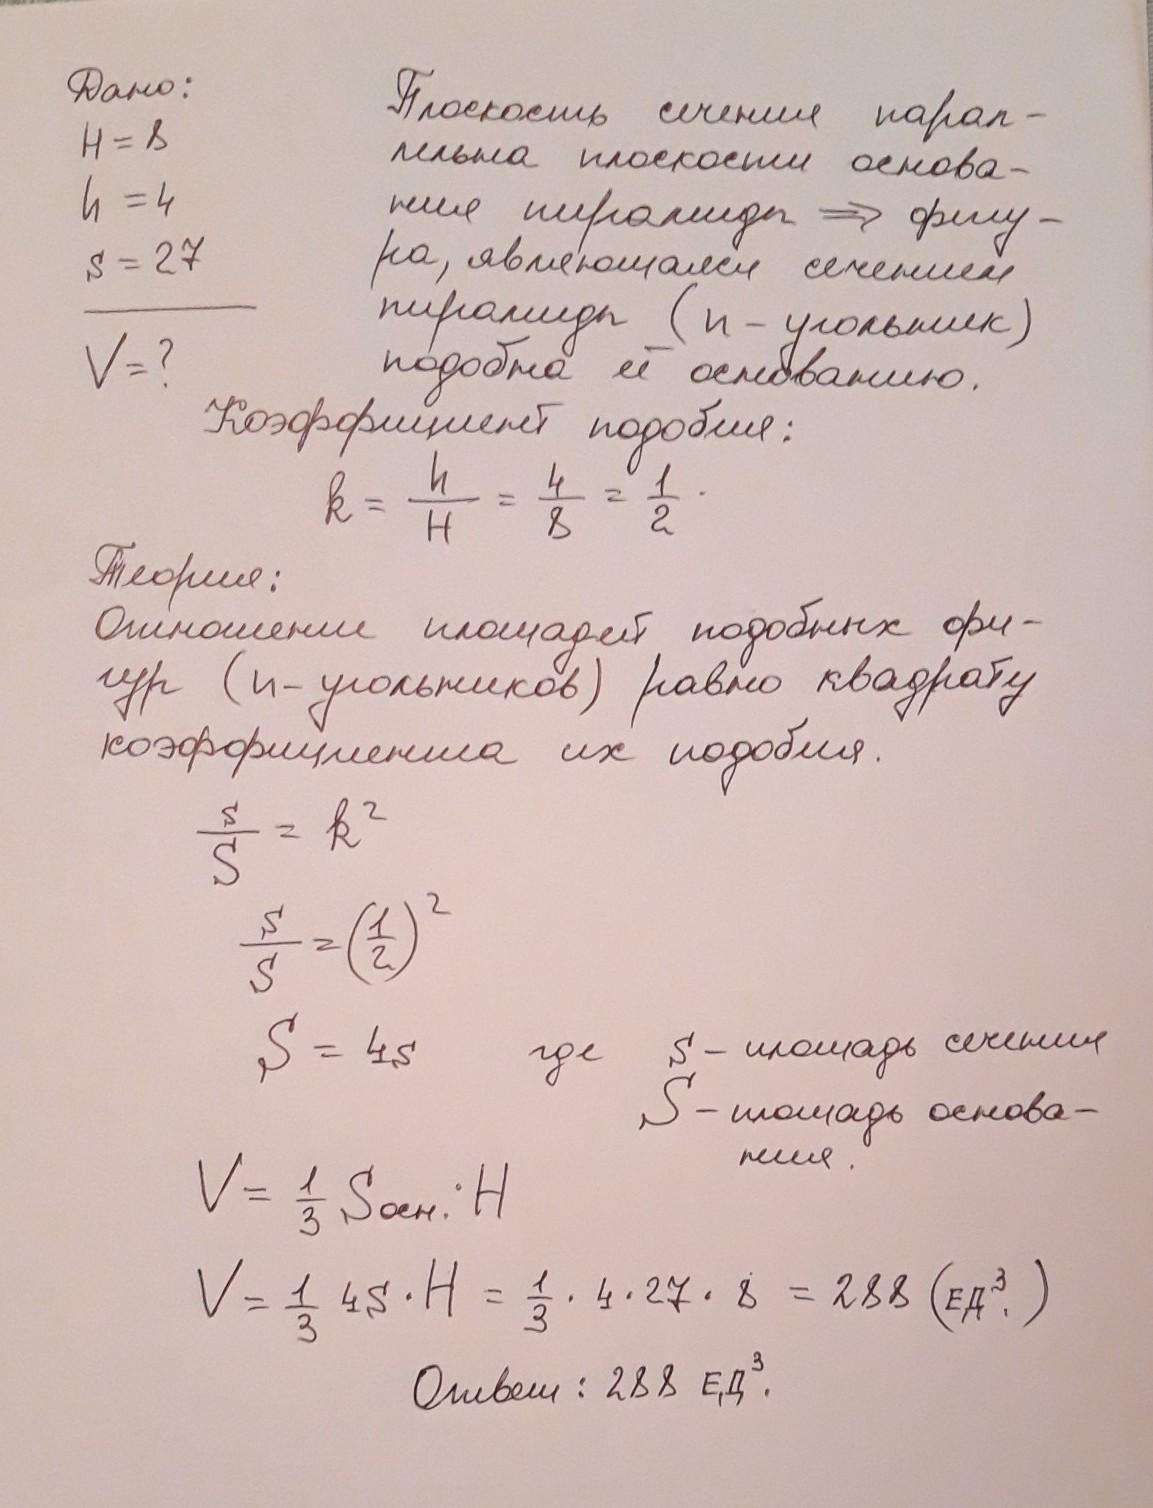 Дано:
H = 8
h = 4
s = 27
V = ?
Плоскость сечения парал-
лельна плоскости основа-
ния пирамиды => фигу-
ра, являющаяся сечением
пирамиды (n - угольник)
подобна её основанию.
Коэффициент подобия:
k = h/H = 4/8 = 1/2.
Теория:
Отношение площадей подобных фи-
гур (n-угольников) равно квадрату
коэффициента их подобия.
s/S = k²
s/S = (1/2)²
S = 4s где s – площадь сечения
S – площадь основа-
ния.
V = 1/3 Sосн. · H
V = 1/3 4s · H = 1/3 · 4 · 27 · 8 = 288 (ЕД³.)
Ответ: 288 ЕД³.